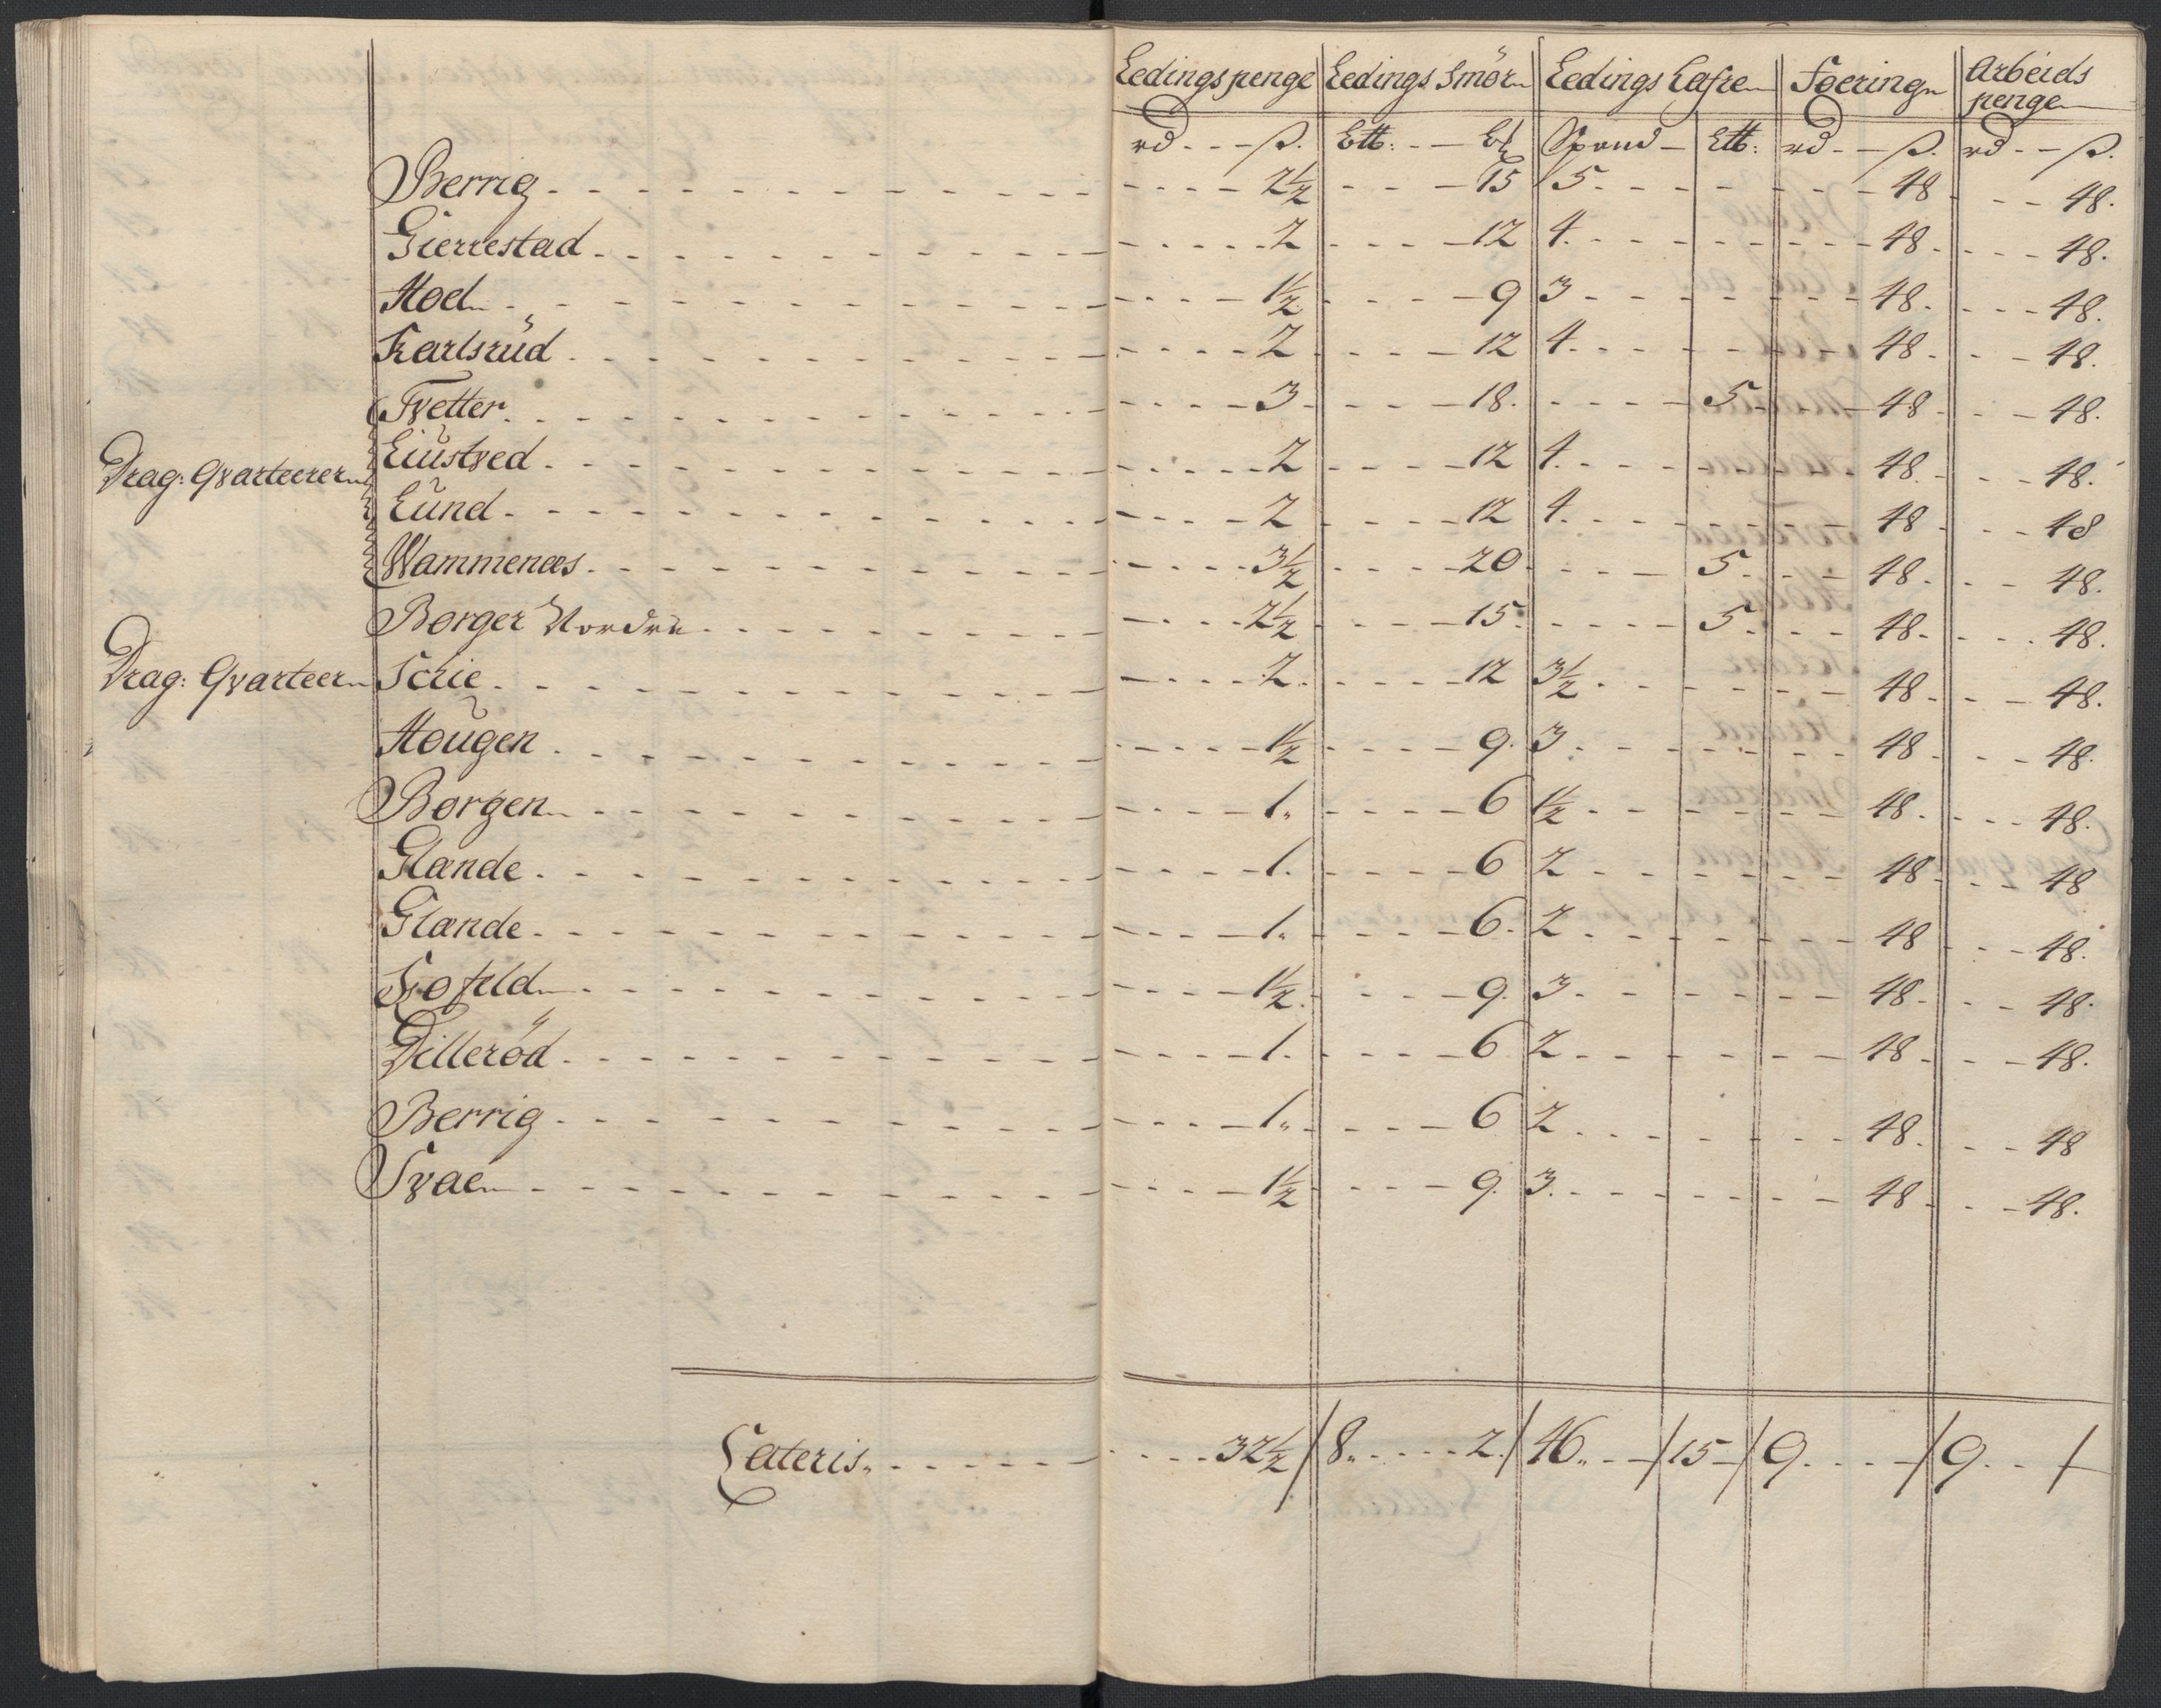 Ledings penge Ledings Smör Ledings Hafre Foering Arbeids penge
rd ß. Ett: Spand Ett: rd ß. rd ß.
Berrig 2½ 15 5 48 48.
Gierrestad 2 12 4 48 48.
Hoel 1½ 9 3 48 48.
Karlsrud 2 12 4 48 48.
Tvetter 3 18 5 48 48.
Drag: Qvarteerer Liustved 2 12 4 48 48.
Lund 2 12 4 48 48
Wammenæs 3½ 20 5 48 48.
Borger Nordre 2½ 15 5 48 48.
Drag: Qvarteer Scrie 2 12 3½ 48 48.
Hougen 1½ 9 3 48 48.
Borgen 1 6 1½ 48 48.
Glende 1 6 2 48 48
Glende 1 6 2 48 48.
1½ 9 3 48 48.
Dillerød 1 6 2 48 48.
Berrig 1 6 2 48 48
Svae 1½ 9 3 48 48.
Lateris 32½ / 8 2 / 46 / 15 / 9 / 9 /